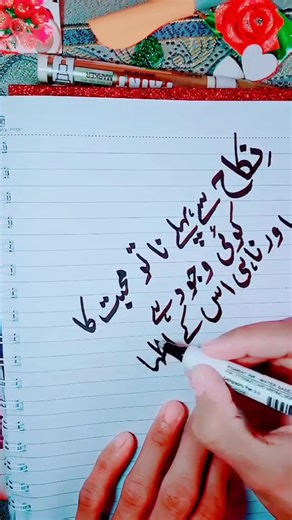 نکاح سے پہلے نا تو محبت کا
کوئی وجود ہے
اور ناہی اس کے اظہا
MARKER